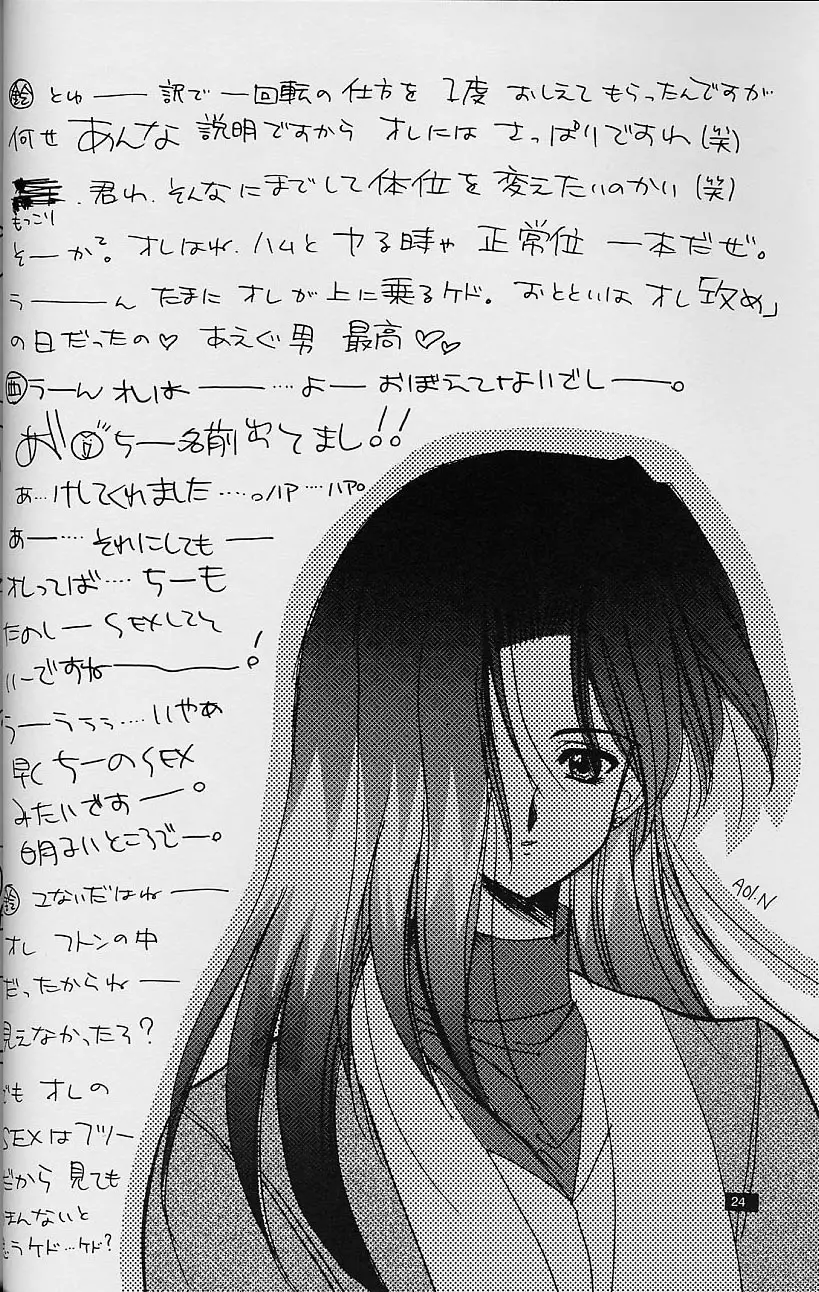 鈴 とゆ―― 訳で 一回転の 仕方を 1度 おしえて もらったんですが
何せ あんな 説明ですから オレには さっぱりですわ(笑)
君わ.そんなにまでして 体位を 変えたいのかい(笑)
もっこり
そーか? オレはね.ハムと ヤる時ゃ 正常位 一本だぜ。
う――ん たまに オレが 上に 乗るケド。 おとといは オレ「攻め」
の日だったの♡ あえぐ男 最高♡♡
西 うーん オレは――…よー おぼえてないでしー―。
ちー名前 出てまし!!
あ…けしてくれました‥‥。ハア…ハア。
あー‥‥ それにしても ―
オレってば‥‥ ちーも
たのしー SEXしてそ
いーですね――!
うーううぅ‥‥いやぁ
早く ちーのSEX
みたいですー。
明るいところでー。
鈴 2ないだはね ――
オレ フトンの中
だったからね ―
見えなかったろ?
でも オレの
SEXはフツー
だから 見ても
まんないと
思うケド…ケド?
AOI.N
24